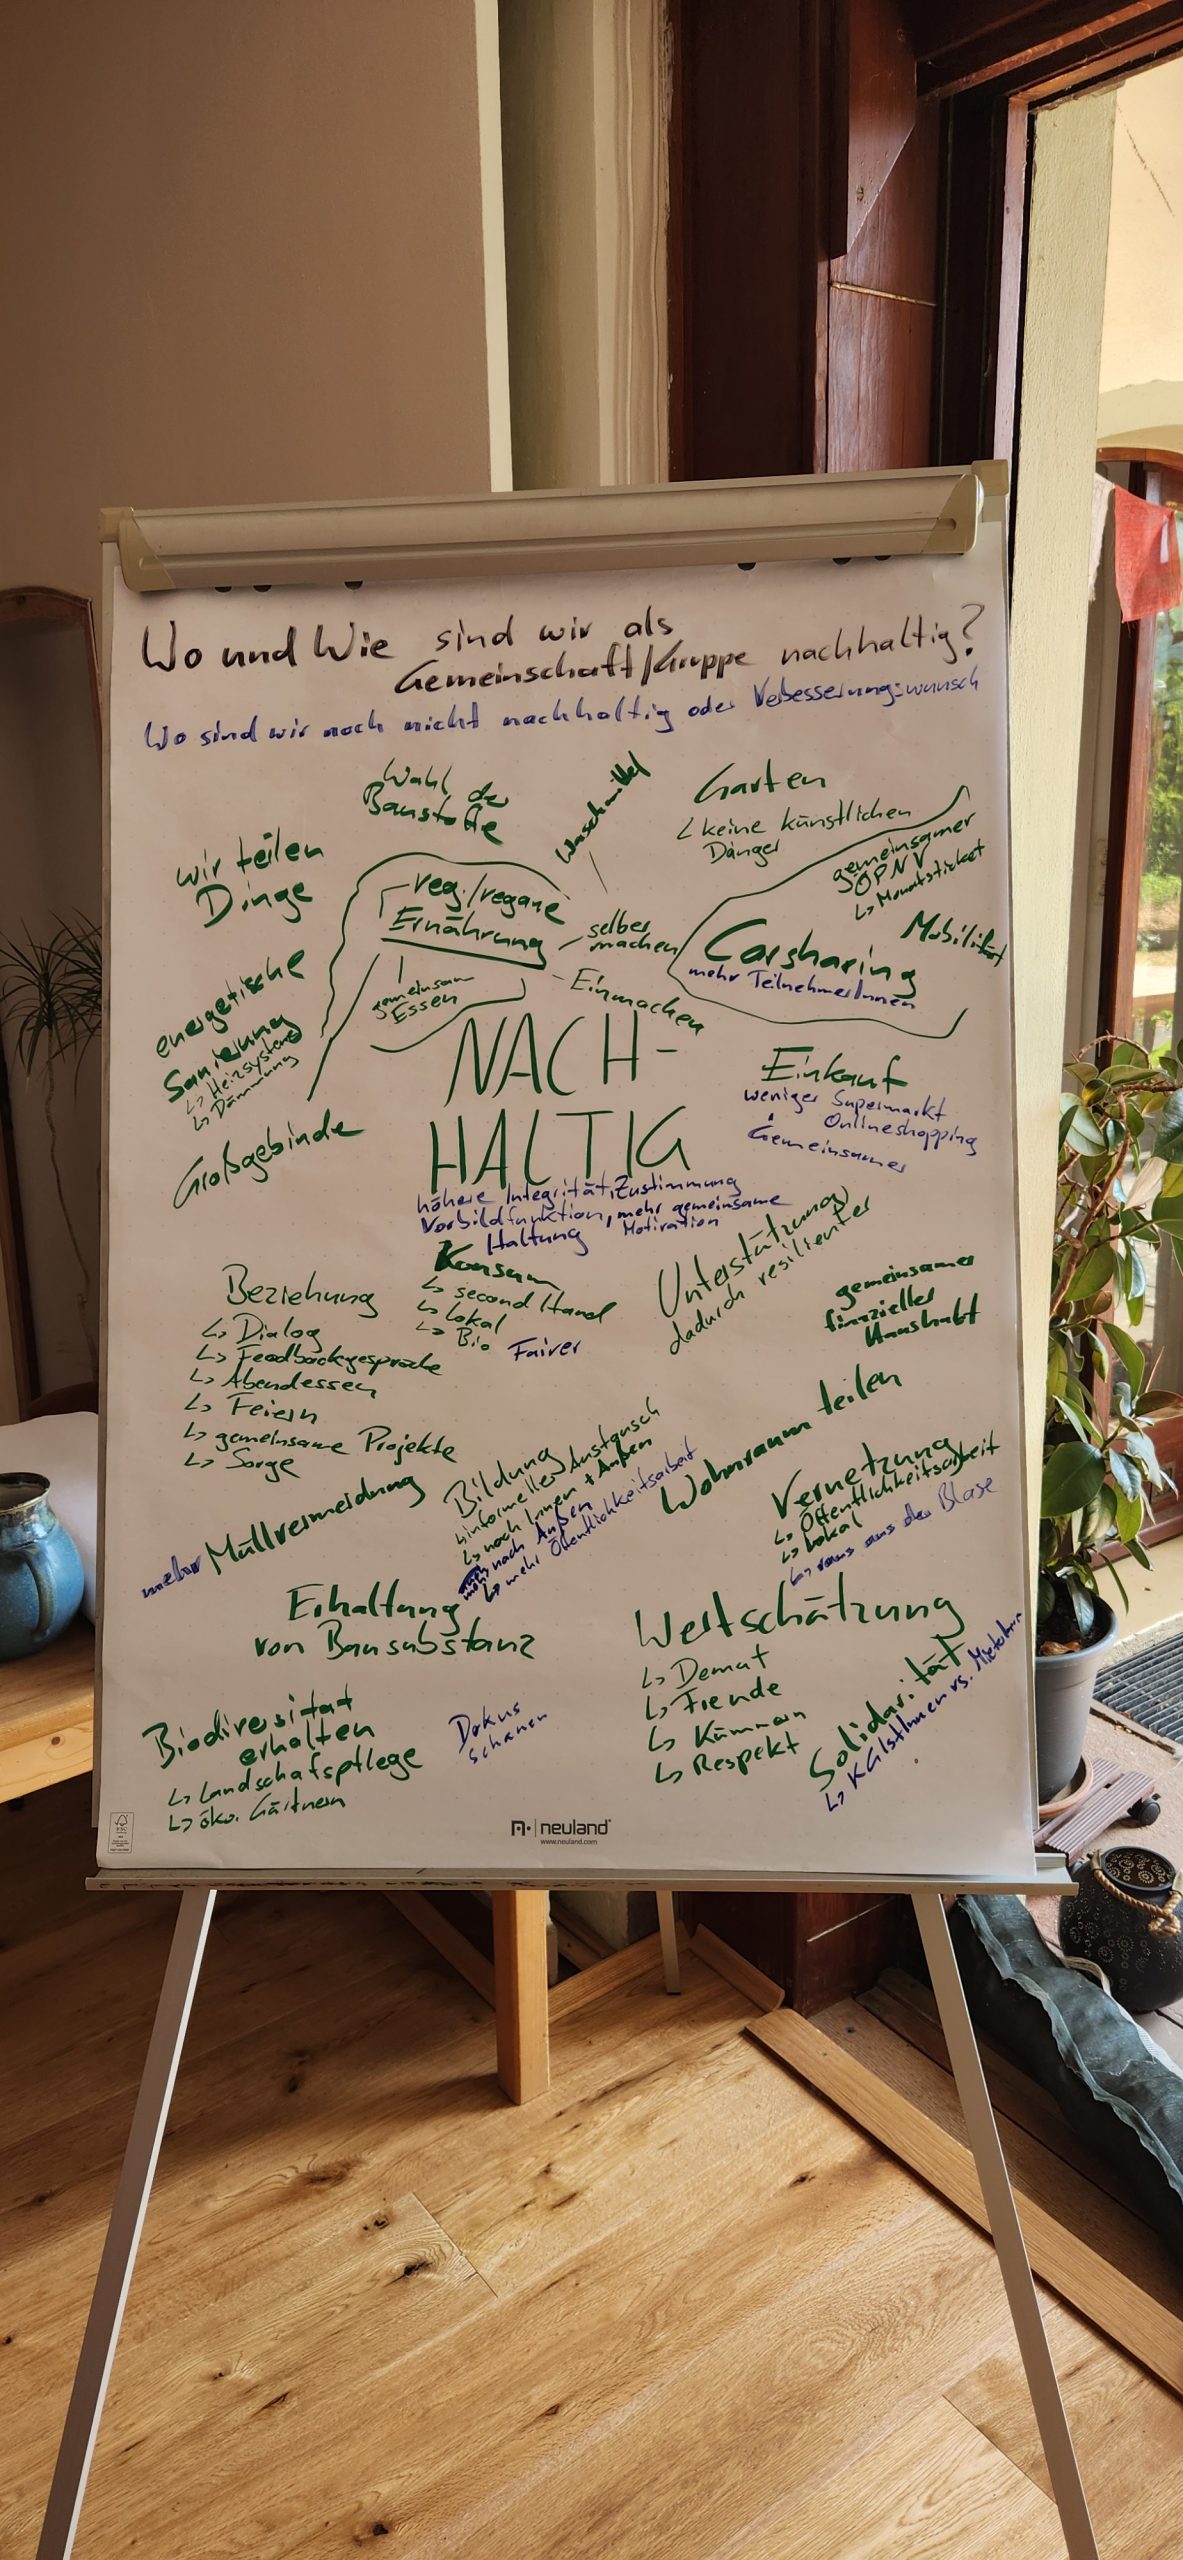 Wo und Wie sind wir als
Gemeinschaft/Gruppe nachhaltig?
Wo sind wir noch nicht nachhaltig oder Verbesserungswunsch
Wahl der
Baustoffe
Waschmittel
Garten
↳ keine künstlichen
Dünger
wir teilen
Dinge
veg./vegane
Ernährung
gemeinsam
Essen
selber
machen
Einmachen
gemeinsamer
ÖPNV
↳ Monatsticket
Mobilität
Carsharing
mehr TeilnehmerInnen
energetische
Sanierung
↳ Heizsysteme
↳ Dämmung
Großgebinde
NACH-
HALTIG
Einkauf
weniger Supermarkt
Onlineshopping
Gemeinsamer
höhere Integrität, Zustimmung
Vorbildfunktion, mehr gemeinsame
Haltung Motivation
Konsum
↳ second Hand
↳ lokal
↳ Bio Fairer
Unterstützung
dadurch resilienter
gemeinsamer
finzieller
Haushalt
Beziehung
↳ Dialog
↳ Feedbackgespräche
↳ Abendessen
↳ Feiern
↳ gemeinsame Projekte
↳ Sorge
mehr Müllvermeidung
Bildung
↳ informeller Austausch
↳ nach Innen + Außen
nach Außen
↳ mehr Öffentlichkeitsarbeit
Wohnraum teilen
Vernetzung
↳ Öffentlichkeitsarbeit
↳ Lokal
↳ raus aus der Blase
Erhaltung
von Bausubstanz
Wertschätzung
↳ Demut
↳ Freude
↳ Kümmern
↳ Respekt
Solidarität
↳ KGistInnen vs. MieterInnen
Biodiversität
erhalten
↳ Landschaftspflege
↳ öko. Gärtnern
Dokus
schauen
neuland
www.neuland.com
FSC